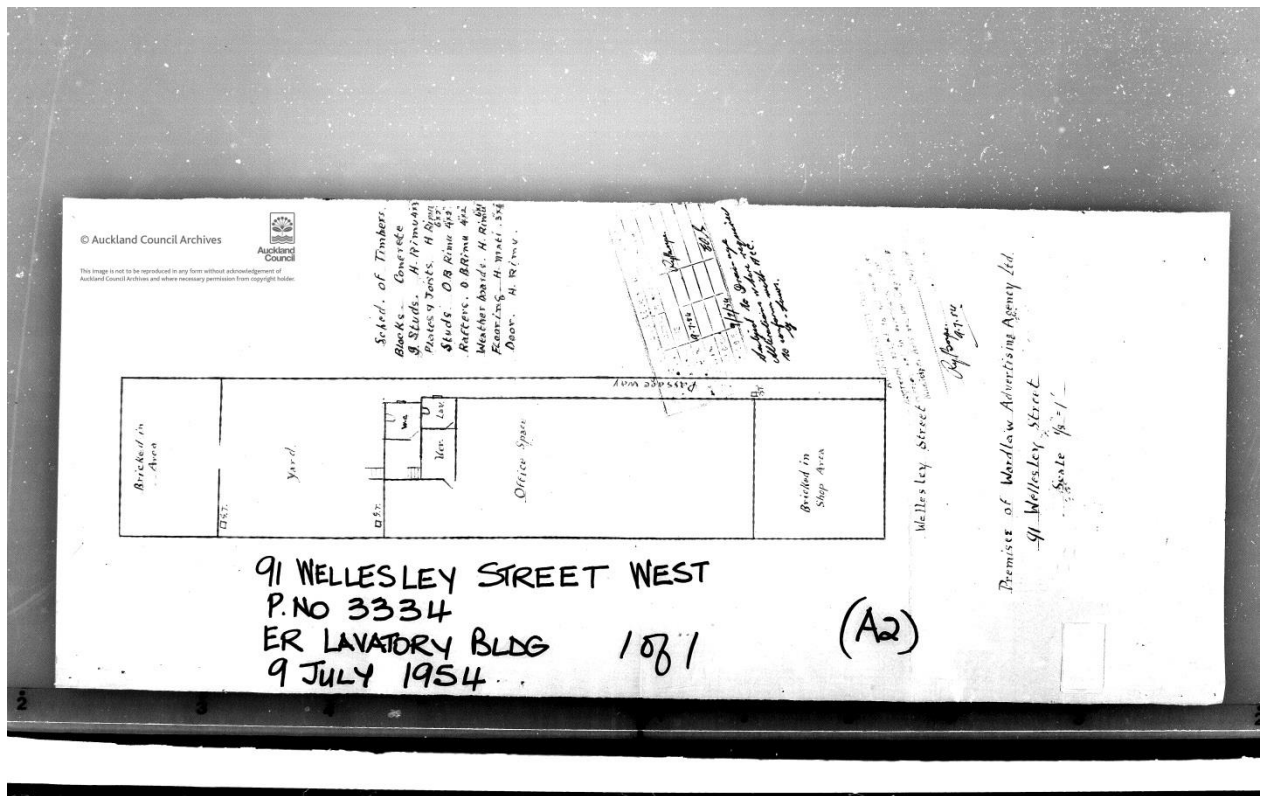 © Auckland Council Archives
Auckland
Council
This image is not to be reproduced in any form without acknowledgement of
Auckland Council Archives and where necessary permission from copyright holder.
Sched. of Timbers.
Blocks - Concrete
J. Studs. H. Rimu 4x3
Plates & Joists. H Rimu
Studs O.B Rimu 4x2
Rafters. O.B Rimu 4x2
Weather boards. H. Rimu
Flooring H. Matai
Door. H. Rimu.
9.7.54
9/7/54
Subject to drainage
alterations where required
to conform with
by-laws.
9.7.54
Passage way
Bricked in
Area
Yard
Lav.
Ver.
Office Space
Bricked in
Shop Area
S.T.
S.T.
ST
Wellesley Street
Premises of Wardlaw Advertising Agency Ltd.
91 Wellesley Street
Scale 1/8" = 1'
91 WELLESLEY STREET WEST
P.NO 3334
ER LAVATORY BLDG 1 of 1
9 JULY 1954
(A2)
2
3
4